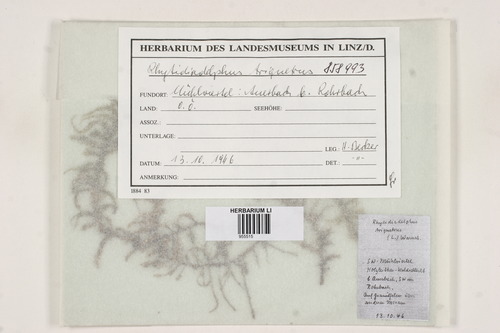 HERBARIUM DES LANDESMUSEUMS IN LINZ/D.
Rhytidiadelphus triquetrus 858993
FUNDORT: Mühlviertel: Auerbach b. Rohrbach
LAND: O.Ö. SEEHÖHE:
ASSOZ.:
UNTERLAGE:
LEG.: H. Becker
DATUM: 13. 10. 1966 DET.: -"-
ANMERKUNG:
I884 83
HERBARIUM LI
Rhytidiadelphus
triquetrus
(L.) Warnst.
SW-Mühlviertel
b. Auerbach, SW
Rohrbach.
Auf
13. 10. 66